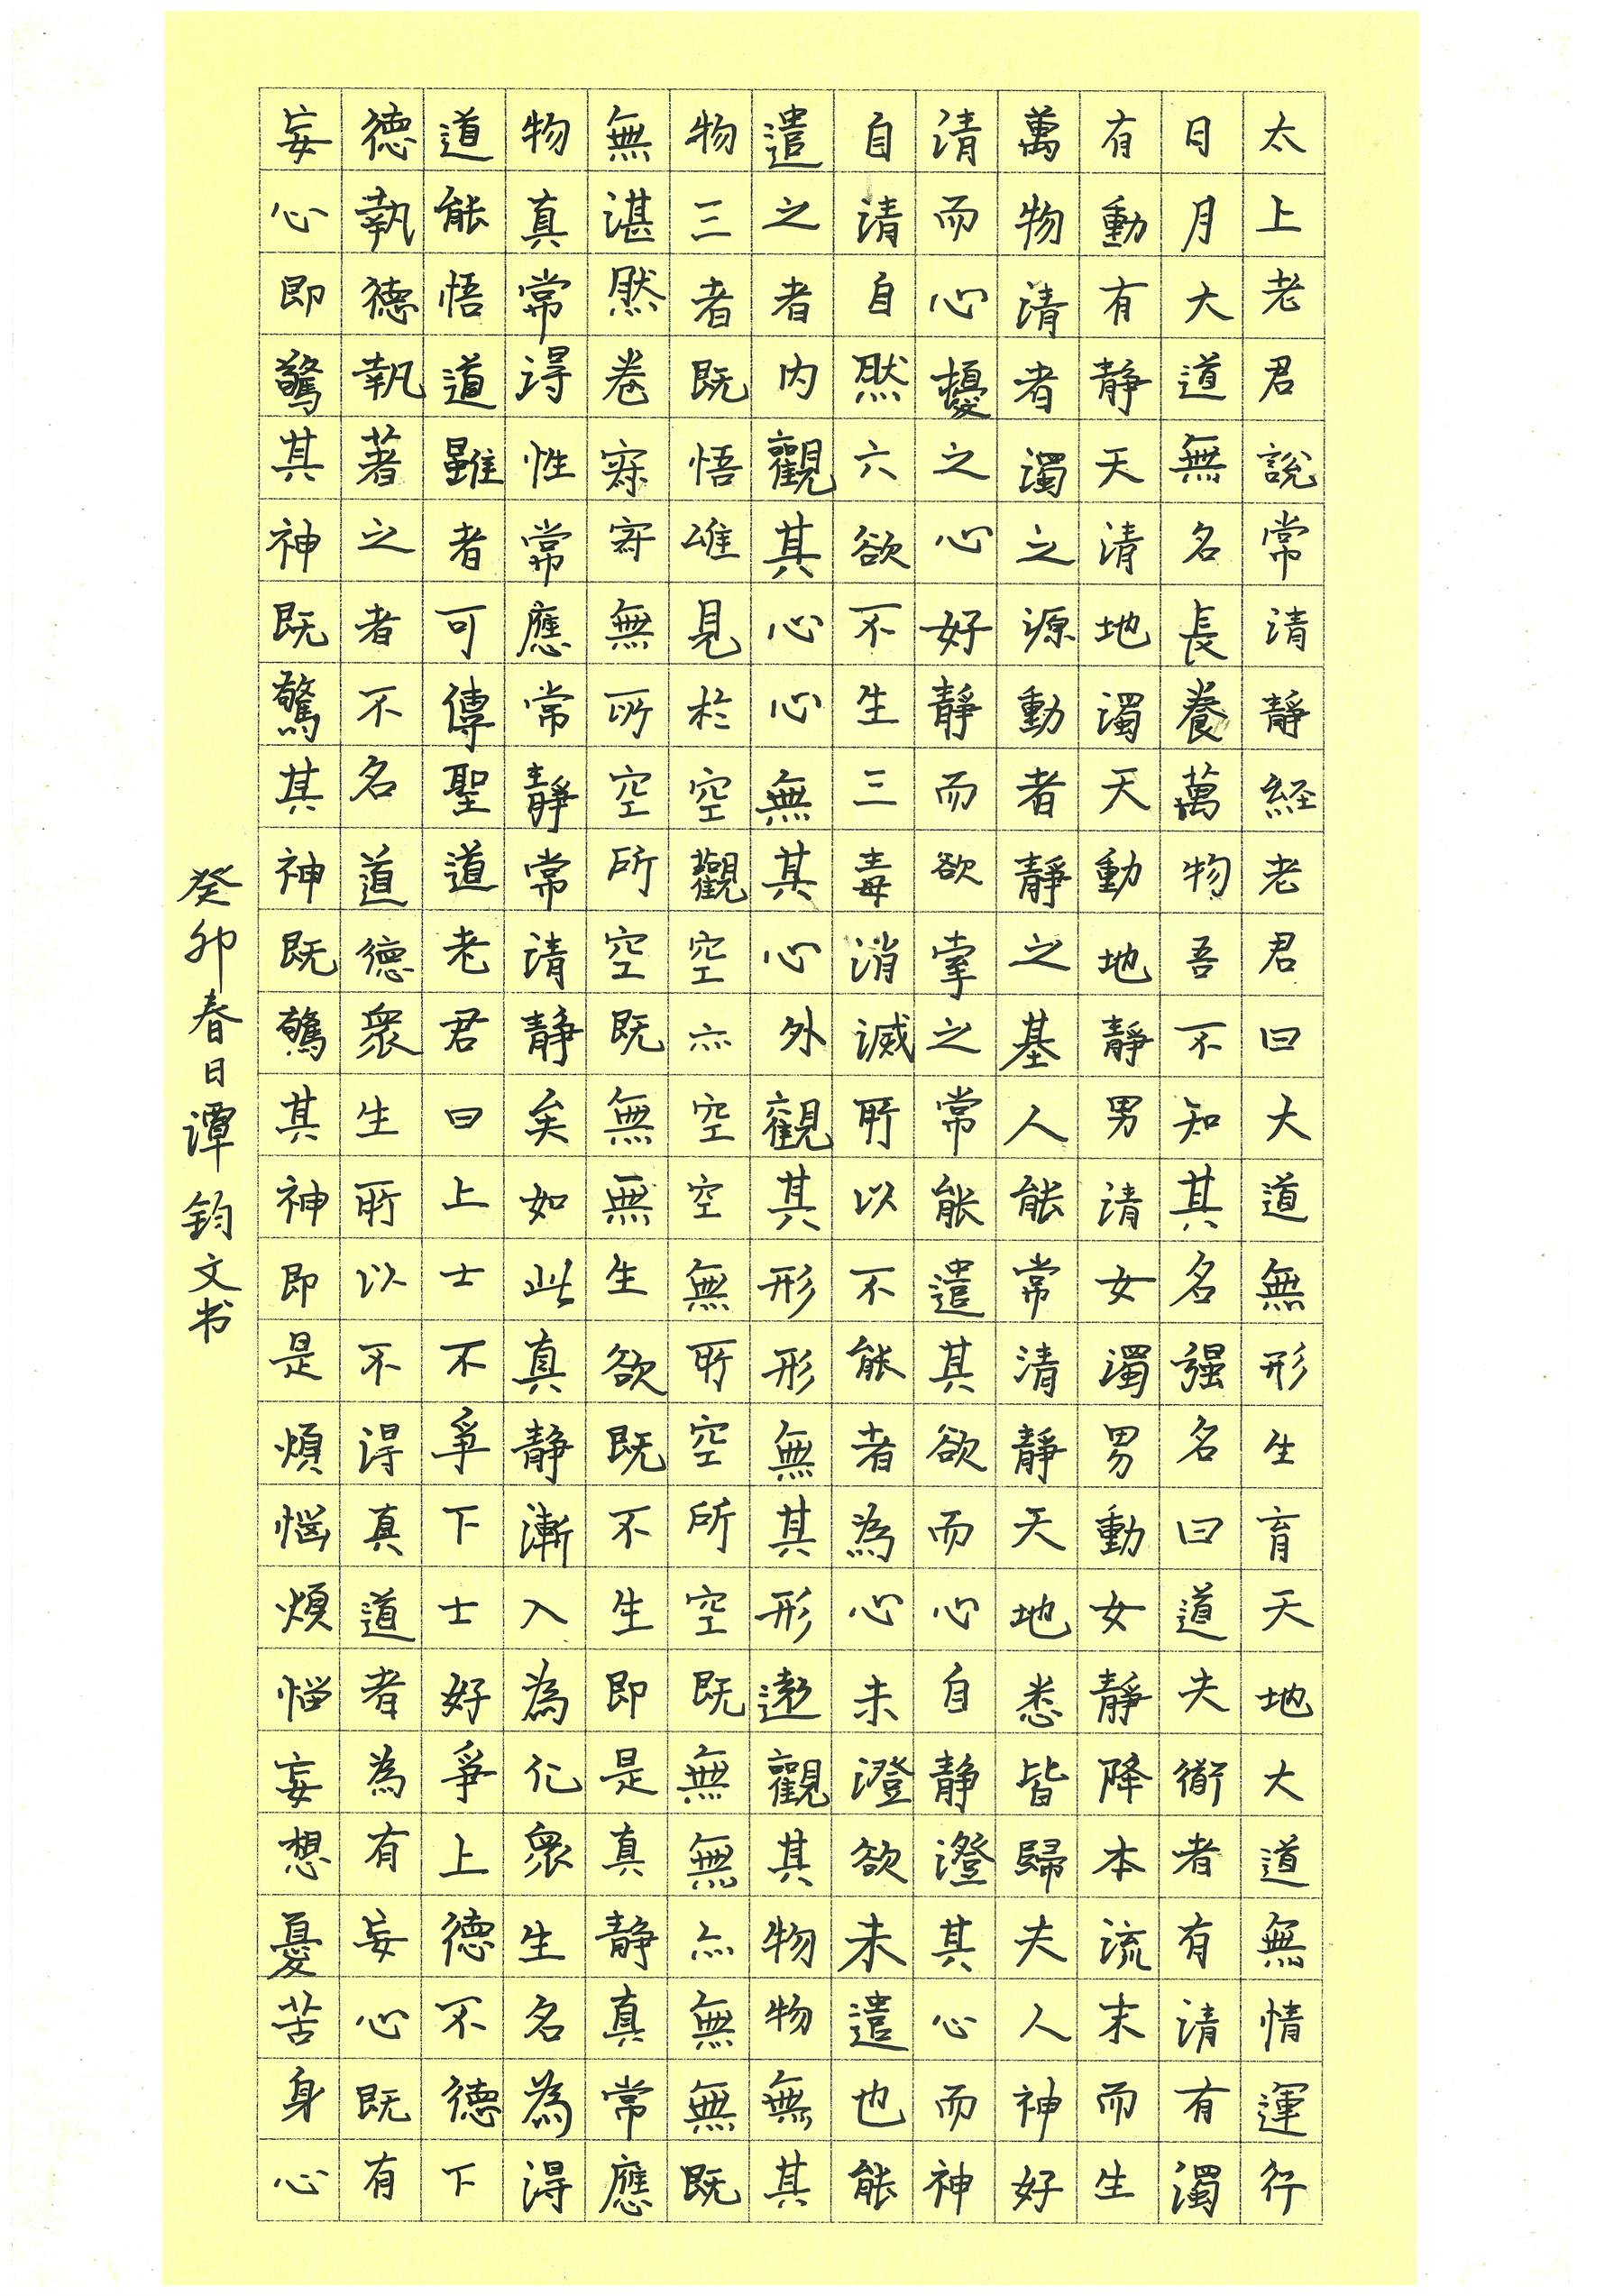 太上老君説常清靜経老君曰大道無形生育天地大道無情運行
日月大道無名長養萬物吾不知其名强名曰道夫衜者有清有濁
有動有静天清地濁天動地靜男清女濁男動女靜降本流末而生
萬物清者濁之源動者靜之基人能常清靜天地悉皆歸夫人神好
清而心擾之心好靜而欲牽之常能遣其欲而心自静澄其心而神
自清自然六欲不生三毒消滅所以不能者為心未澄欲未遣也能
遣之者内觀其心心無其心外觀其形形無其形遠觀其物物無其
物三者既悟唯見於空觀空亦空空無所空所空既無無亦無無既
無湛然卷寂寂無所空所空既無無生欲既不生即是真静真常應
物真常得性常應常靜常清静矣如此真静漸入為化衆生名為得
道能悟道雖者可傳聖道老君曰上士不爭下士好爭上德不德下
德執德執著之者不名道德衆生所以不得真道者為有妄心既有
妄心即驚其神既驚其神既驚其神即是煩惱煩惱妄想憂苦身心
癸卯春日譚鈞文书